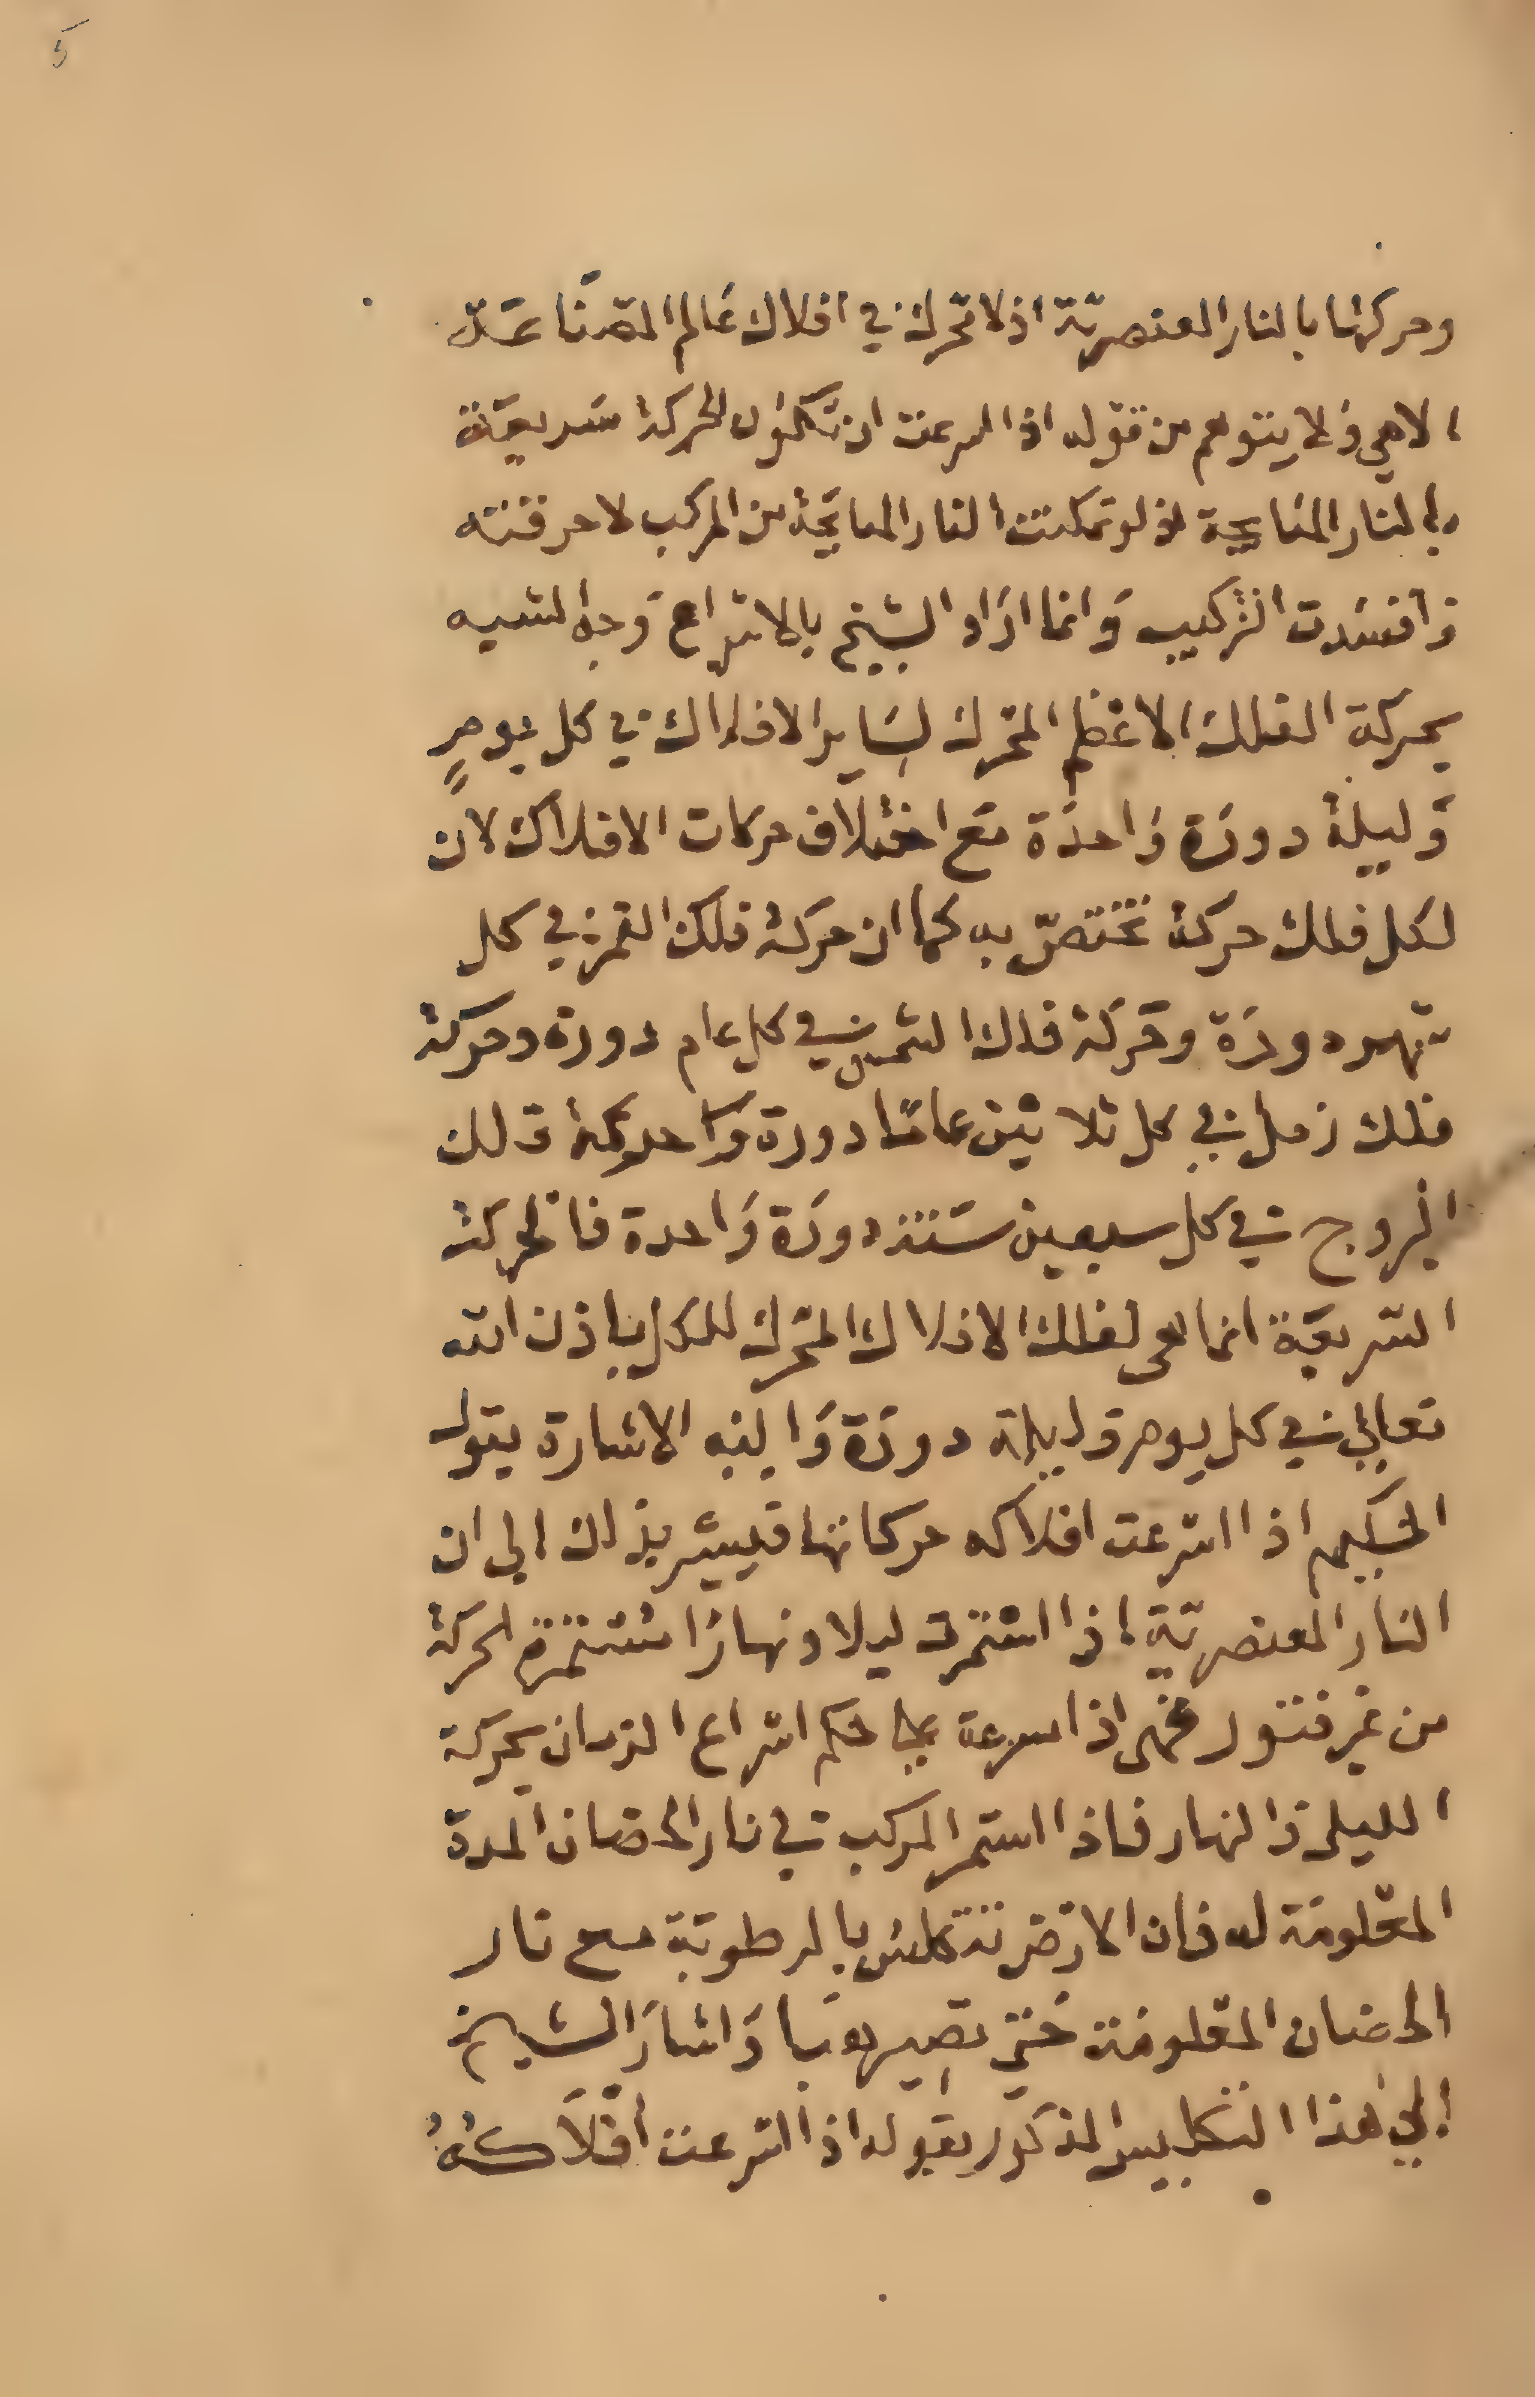 5
وحركتها بالنار العنصرية اذ لا تحرك في افلاك عالم الصناعة
الا هي ولا يتوهم من قوله اذا اسرعت ان تكون الحركة سريعة
بالنار الهايجة اذ لو تمكنت النار الهايجة من المركب لاحرقته
وافسدت التركيب وانما اراد الشيخ بالاسراع وجه الشبه
بحركة الفلك الاعظم المحرك لساير الافلاك في كل يومٍ
وليلة دورة واحدة مع اختلاف حركات الافلاك لان
لكل فلك حركة تختصّ به كما ان حركة فلك القمر في كل
شهر دورة وحركة فلك الشمس في كل عام دورة وحركة
فلك زحل في كل ثلاثين عامًا دورة وحركة فلك
البروج في كل سبعين سنة دورة واحدة فالحركة
السريعة انما هي لفلك الافلاك المحرك للكل باذن الله
تعالى في كل يوم وليلة دورة واليه الاشارة بقول
الحكيم اذا اسرعت افلاكه حركاتها فيشير بذلك الى ان
النار العنصرية اذا استمرت ليلا ونهارًا مستمرة الحركة
من غير فتور فهي اذا سرعة بحكم اسراع الزمان بحركة
الليل والنهار فاذا استمر المركب في نار الحضان المدة
المعلومة له فان الارض تتكلس بالرطوبة مع نار
الحضان المعلومة حتى تصير هبا واشار الشيخ
الى هذا التكليس المذكور بقوله اذا اسرعت افلاكهُ